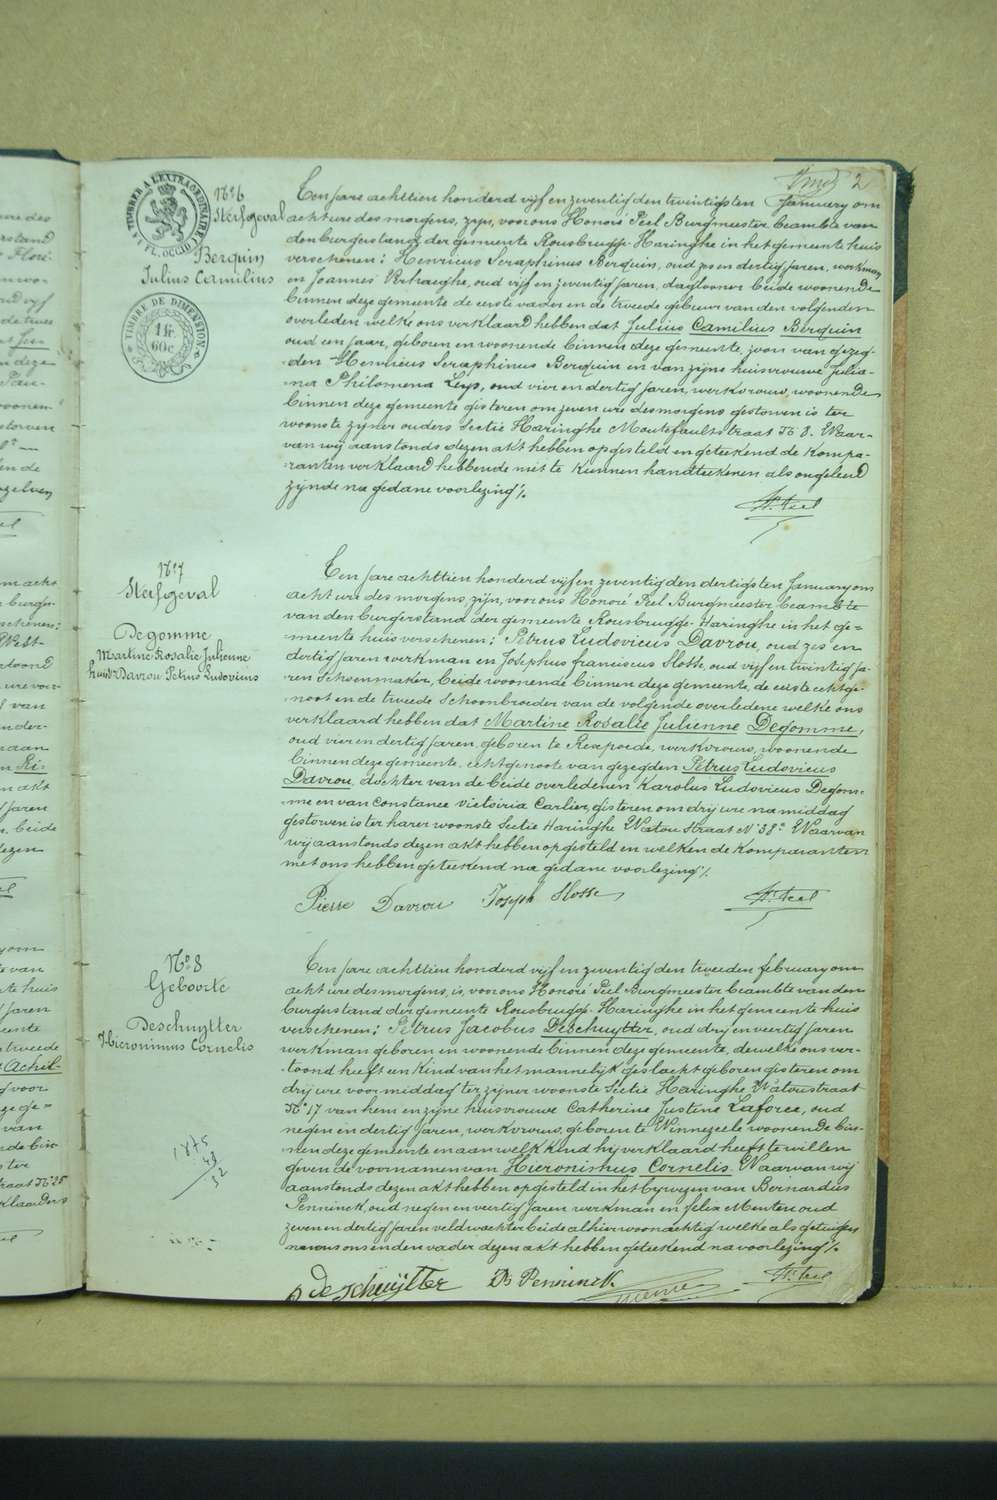 2
TIMBRE A L'EXTRAORDINAIRE
FL. OCCID.
TIMBRE DE DIMENSION
1 fr
60c
N° 6
Sterfgeval
Berquin
Julius Camilius
Een jare achttien honderd vijf en zeventig den twintigsten January om
acht ure des morgens, zijn, voor ons Honoré Peel Burgmeester beambte van
den burgerstand der gemeente Rousbrugge-Haringhe in het gemeente huis
verschenen: Henricus Seraphinus Berquin, oud zes en dertig jaren, werkman
en Joannes Verhaeghe, oud vijf en zeventig jaren, daglooner beide woonende
binnen deze gemeente de eerste vader en de tweede gebuur van den volgenden
overleden welke ons verklaard hebben dat Julius Camilius Berquin
oud een jaar, geboren en woonende binnen deze gemeente, zoon van gezeg-
den Henricus Seraphinus Berquin en van zijne huisvrouwe Julia-
na Philomena Leys, oud vier en dertig jaren, werkvrouw, woonende
binnen deze gemeente gisteren om zeven ure des morgens gestorven is ter
woonste zijner ouders Sectie Haringhe Moutefaultstraat N° 8. Waar-
van wij aanstonds dezen akt hebben opgesteld en geteekend de kompa-
ranten verklaard hebbende niet te kunnen handteekenen als ongeleerd
zijnde na gedane voorlezing ./.
H. Peel
N° 7
Sterfgeval
Degomme
Martine Rosalie Julienne
huisvr Davrou Petrus Ludovicus
Een jare achttien honderd vijf en zeventig den dertigsten January om
acht ure des morgens zijn, voor ons Honoré Peel Burgmeester, beambte
van den burgerstand der gemeente Rousbrugge-Haringhe in het ge-
meente huis verschenen: Petrus Ludovicus Davrou, oud zes en
dertig jaren werkman en Josephus franciscus Hosse, oud vijf en twintig ja-
ren Schoenmaker, beide woonende binnen deze gemeente, de eerste echtge-
noot en de tweede Schoonbroeder van de volgende overledene welke ons
verklaard hebben dat Martine Rosalie Julienne Degomme,
oud vier en dertig jaren, geboren te Rexpoede, werkvrouw, woonende
binnen deze gemeente, echtgenoote van gezegden Petrus Ludovicus
Davrou, dochter van de beide overledenen Karolus Ludovicus Degom-
me en van Constance Victoiria Carlier, gisteren om drij ure namiddag
gestorven is ter harer woonste Sectie Haringhe Watou Straat N° 38. Waarvan
wij aanstonds dezen akt hebben opgesteld en welken de komparanten
met ons hebben geteekend na gedane voorlezing ./.
Pierre Davrou Joseph Hosse H. Peel
N° 8
Geboorte
Deschuytter
Hieronimus Cornelis
Een jare achttien honderd vijf en zeventig den tweeden february om
acht ure des morgens, is, voor ons Honoré Peel Burgmeester beambte van den
burgerstand der gemeente Rousbrugge-Haringhe in het gemeente huis
verschenen: Petrus Jacobus Deschuytter, oud drij en veertig jaren
werkman geboren en woonende binnen deze gemeente, dewelke ons ver-
toond heeft een kind van het mannelijk geslacht geboren gisteren om
drij ure voormiddag ter zijner woonste Sectie Haringhe Watoustraat
N° 17 van hem en zijne huisvrouwe Catherine Justine Laforce, oud
negen en dertig jaren, werkvrouw, geboren te Winnezeele woonende bin-
nen deze gemeente en aan welk kind hij verklaard heeft te willen
geven de voornamen van Hieronimus Cornelis. Waarvan wij
aanstonds dezen akt hebben opgesteld in het bywezen van Bernardus
Penninck, oud negen en veertig jaren, werkman en felix Menten oud
zeven en dertig jaren veldwachter beide alhier woonachtig welke als getuigen
nevens ons en den vader dezen akt hebben geteekend na voorlezing ./.
1875
43
32
P deschuijtter Bs Penninck H. Peel